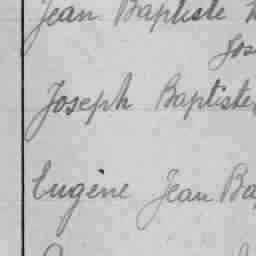 Jean Baptiste
Joseph Baptiste
Eugène Jean